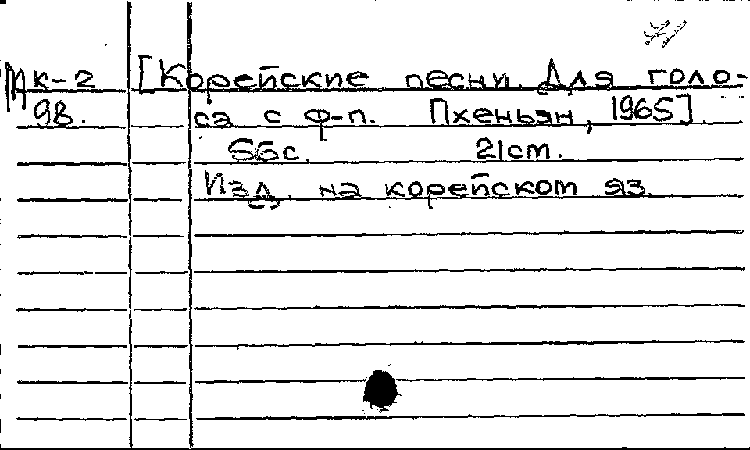 Мк-2 [Корейские песни. Для голо-
98. са с ф-п. Пхеньян, 1965].
56с. 21cm.
Изд. на корейском яз.